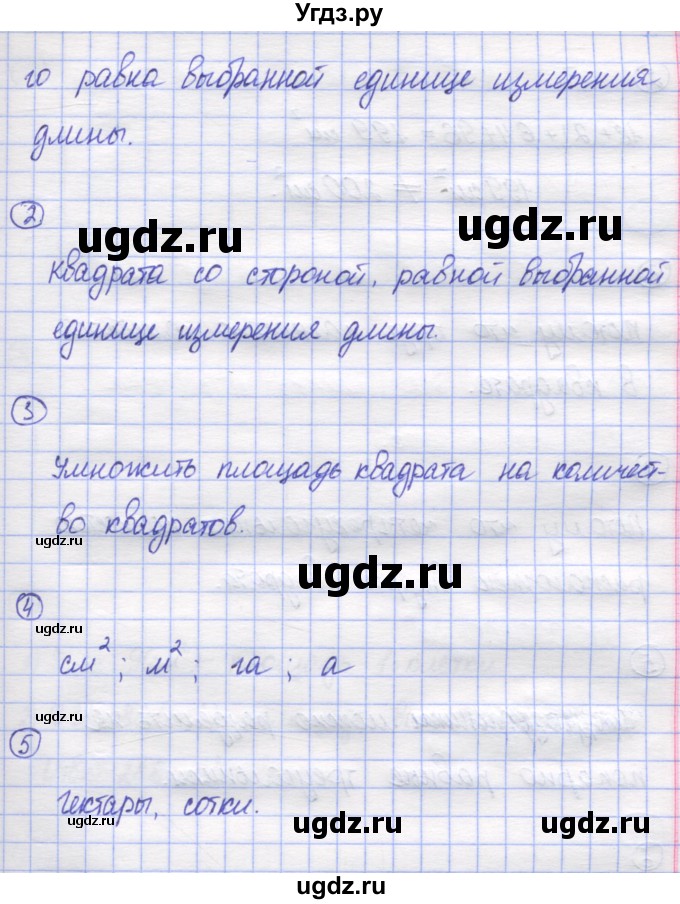 Угдз.ру
го равна выбранной единице измерения
длины.
2
ugdz.ru ugdz.ru
квадрата со стороной, равной выбранной
единице измерения длины.
3
Умножить площадь квадрата на количест-
во квадратов.
ugdz.ru
ugdz.ru
4
ugdz.ru
см²; м²; га; а
5
ugdz.ru
гектары, сотки.
ugdz.ru ugdz.ru ugdz.ru
ugdz.ru